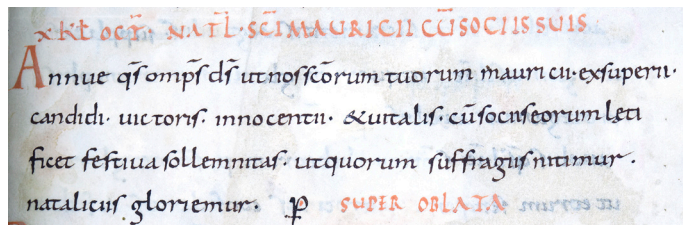 x kƚ oct̄. natl̄. sc̄i mauricii cū sociis suis
Annue qs̄ omps̄ ds̄ ut nos sc̄orum tuorum mauricii · exsuperii ·
candidi · uictoris · innocentii · &uitalis · cū sociis eorum leti
ficet festiua sollemnitas · ut quorum suffragiis nitimur .
nataliciis gloriemur . ꝑ super oblata